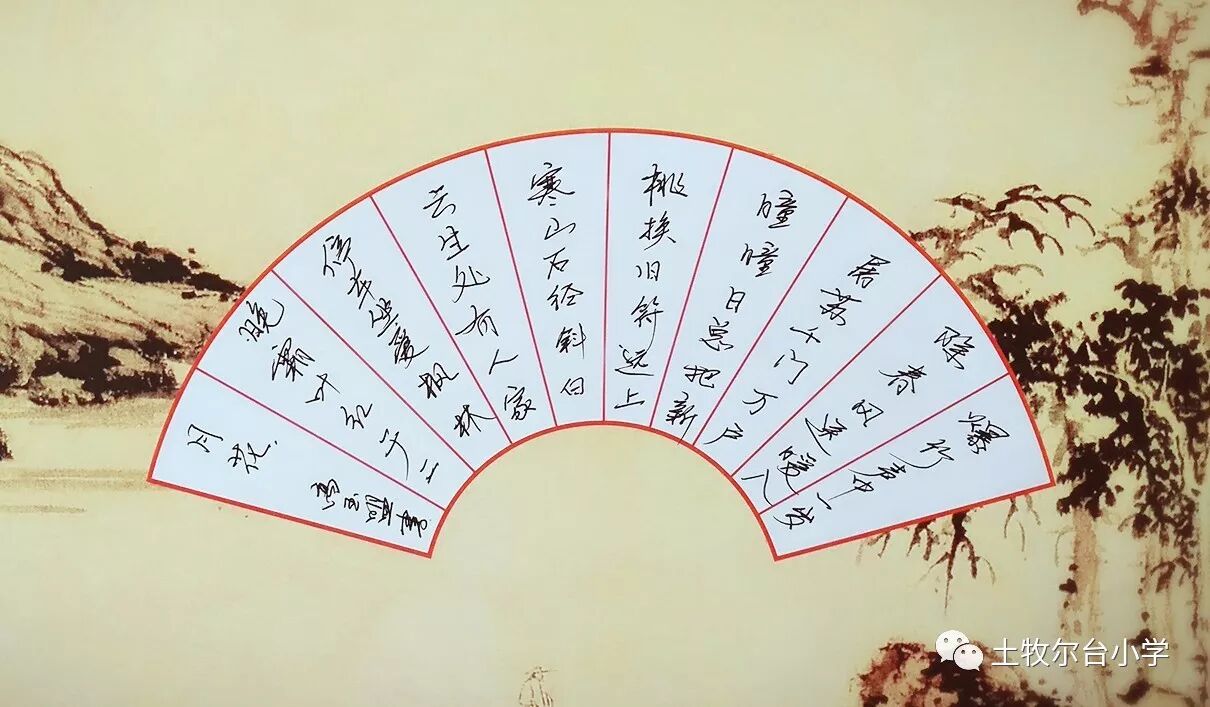 爆竹声中一岁
除春风送暖入
屠苏千门万户
曈曈日总把新
桃换旧符远上
寒山石径斜白
云生处有人家
停车坐爱枫林
晚霜叶红于二
月花
书
土牧尔台小学